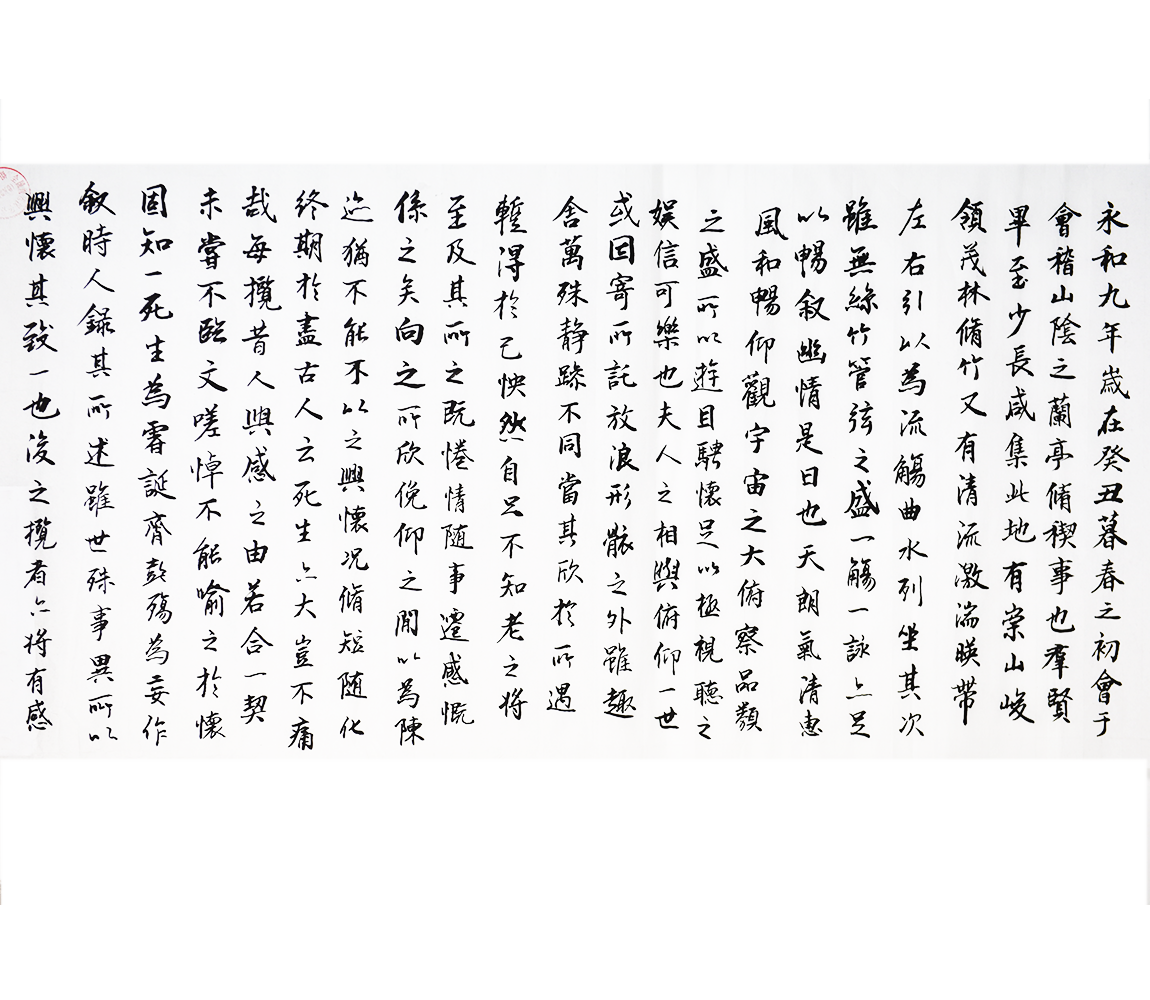 永和九年歲在癸丑暮春之初會于
會稽山陰之蘭亭脩禊事也羣賢
畢至少長咸集此地有崇山峻
領茂林脩竹又有清流激湍暎帶
左右引以為流觴曲水列坐其次
雖無絲竹管弦之盛一觴一詠亦足
以暢叙幽情是日也天朗氣清惠
風和暢仰觀宇宙之大俯察品類
之盛所以遊目騁懷足以極視聽之
娛信可樂也夫人之相與俯仰一世
或因寄所託放浪形骸之外雖趣
舍萬殊静躁不同當其欣於所遇
暫得於己怏然自足不知老之將
至及其所之既惓情随事遷感慨
係之矣向之所欣俛仰之間以為陳
迹猶不能不以之興懷况脩短随化
終期於盡古人云死生亦大豈不痛
哉每攬昔人興感之由若合一契
未嘗不臨文嗟悼不能喻之於懷
固知一死生為虛誕齊彭殤為妄作
叙時人錄其所述雖世殊事異所以
興懷其致一也後之攬者亦將有感